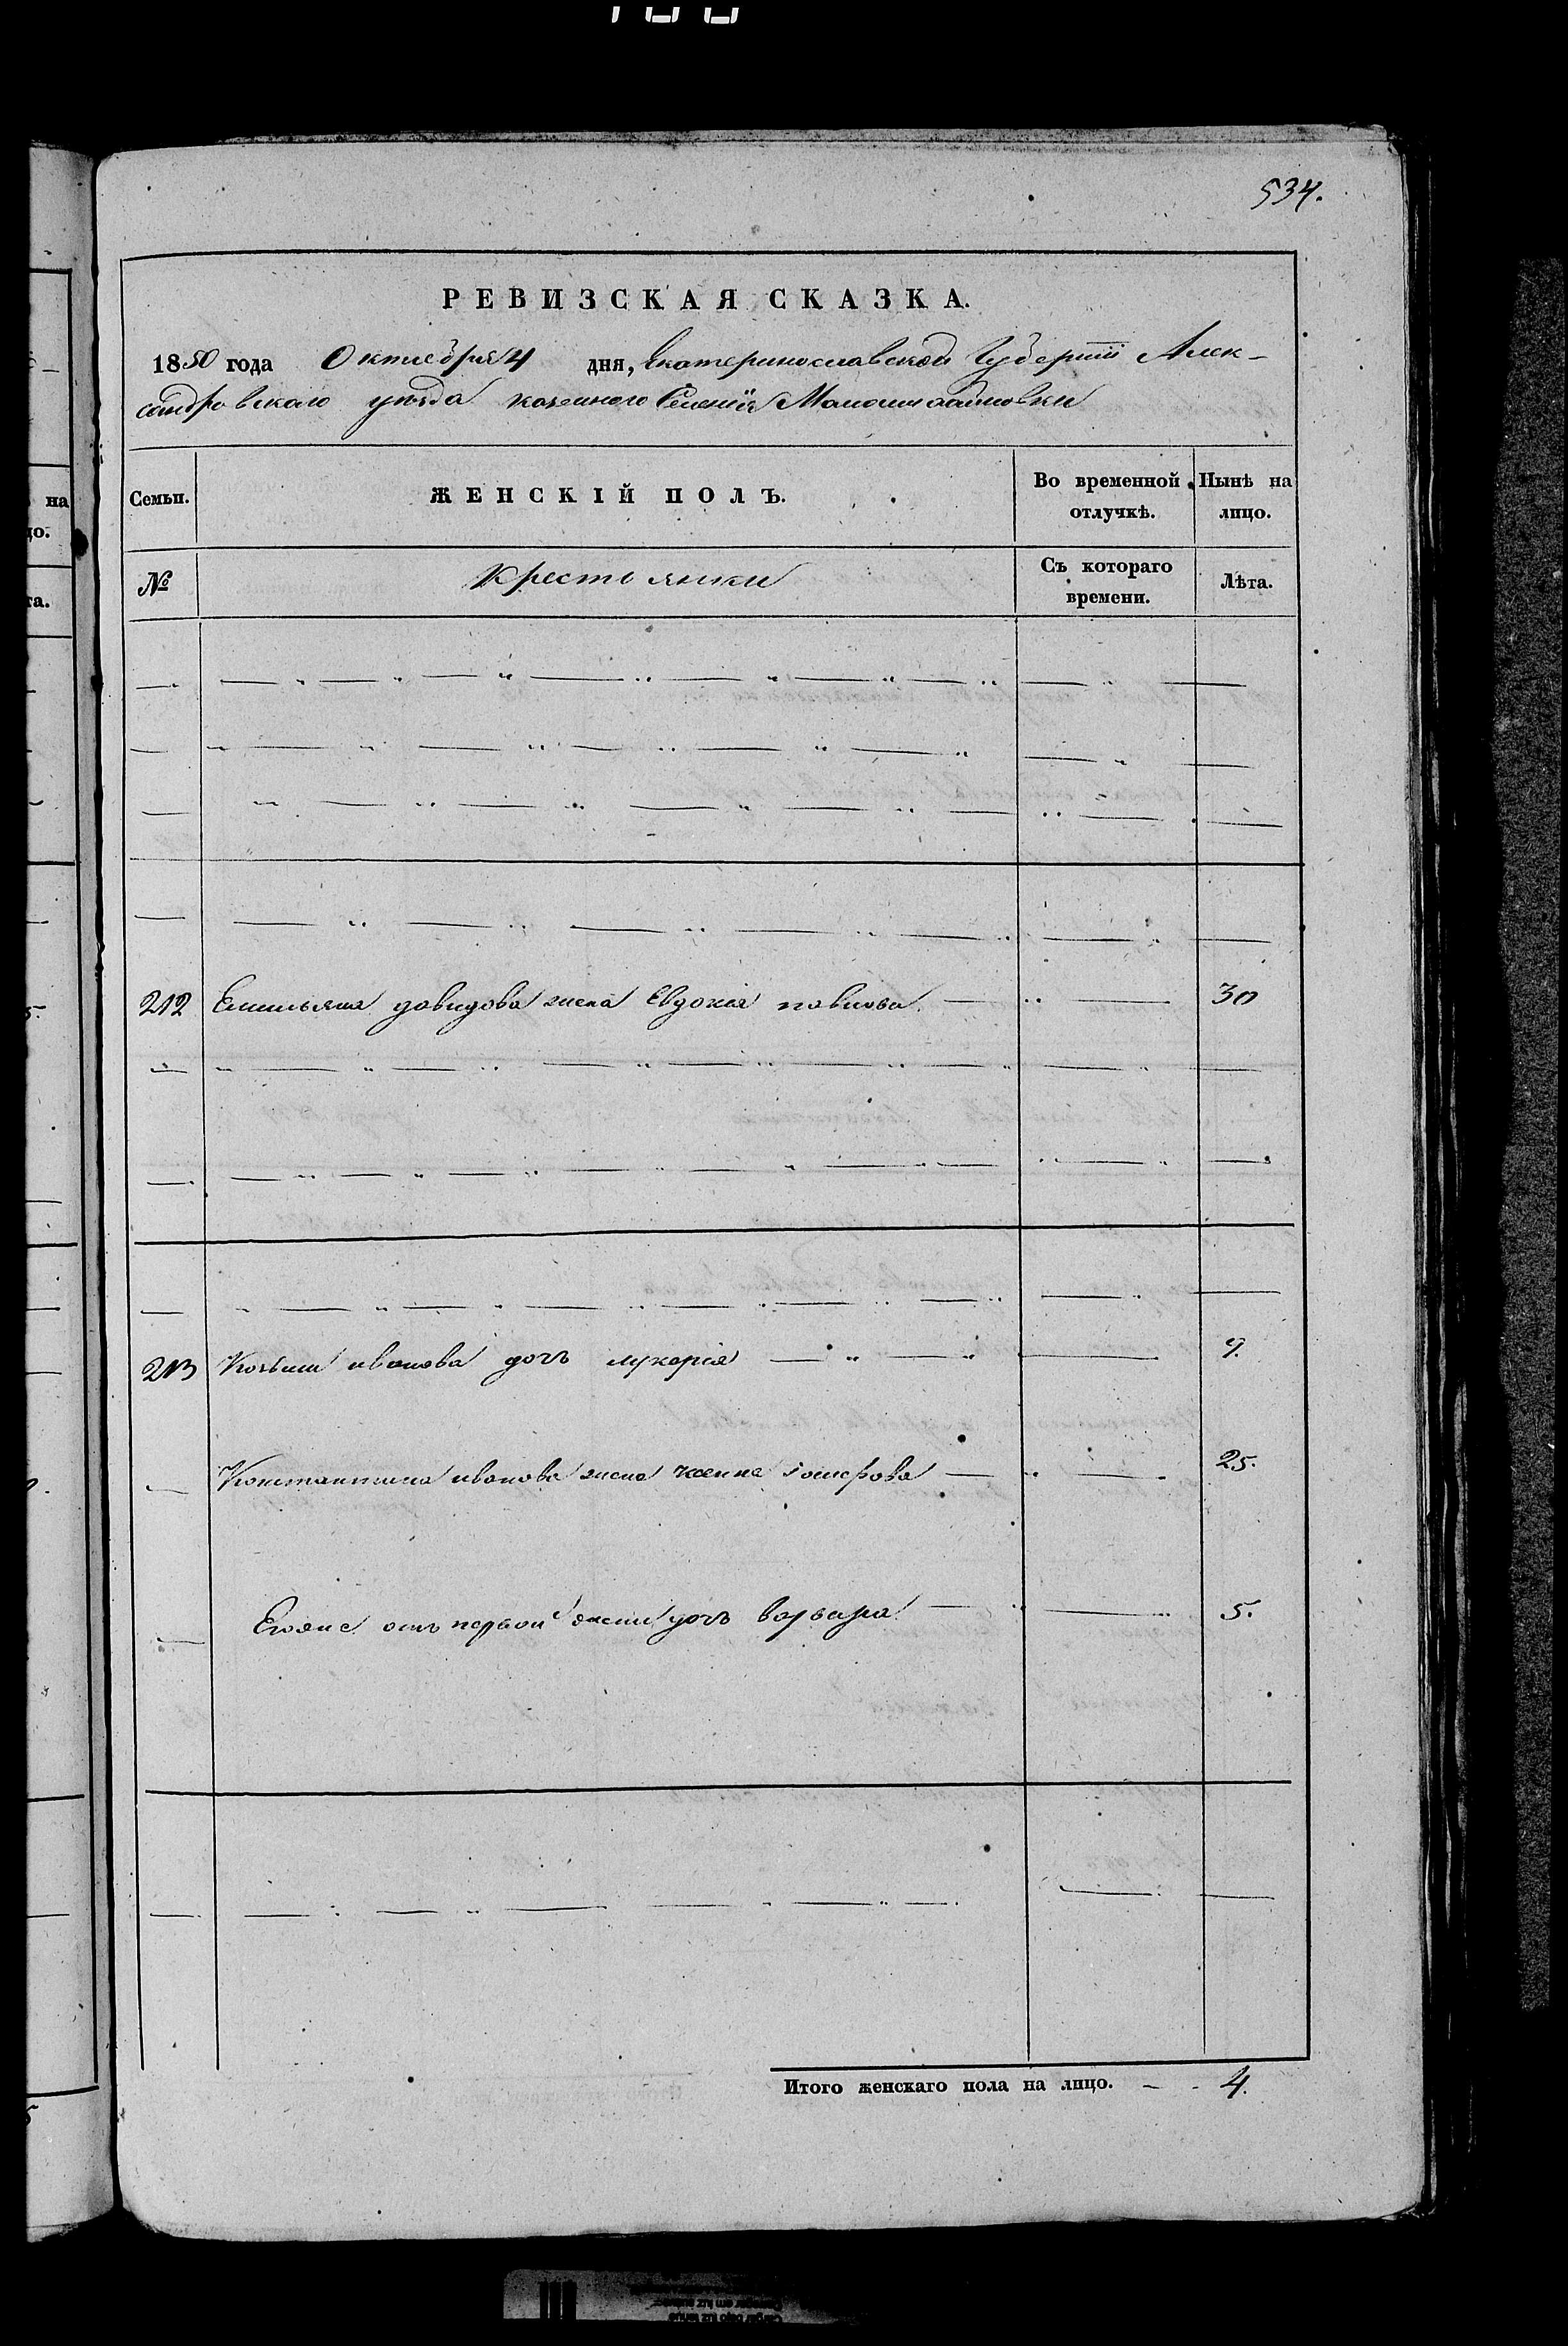 534.
РЕВИЗСКАЯ СКАЗКА.
1850 года Октября 4 дня, Екатеринославской Губернiи Алек-
сандровскаго уезда казенного Селенiя
Семьи. ЖЕНСКIЙ ПОЛЪ. Во временной отлучкѣ. Нынѣ на лицо.
№ Крестьянки Съ котораго времени. Лѣта.
212 Емильяна давидова жена Евдокiя павлова 30
213 ивонова дочь лукерiя 9.
Константина иванова жена iосифова 25.
Егоже отъ первой жены дочь варвара 5.
Итого женскаго пола на лицо. 4.